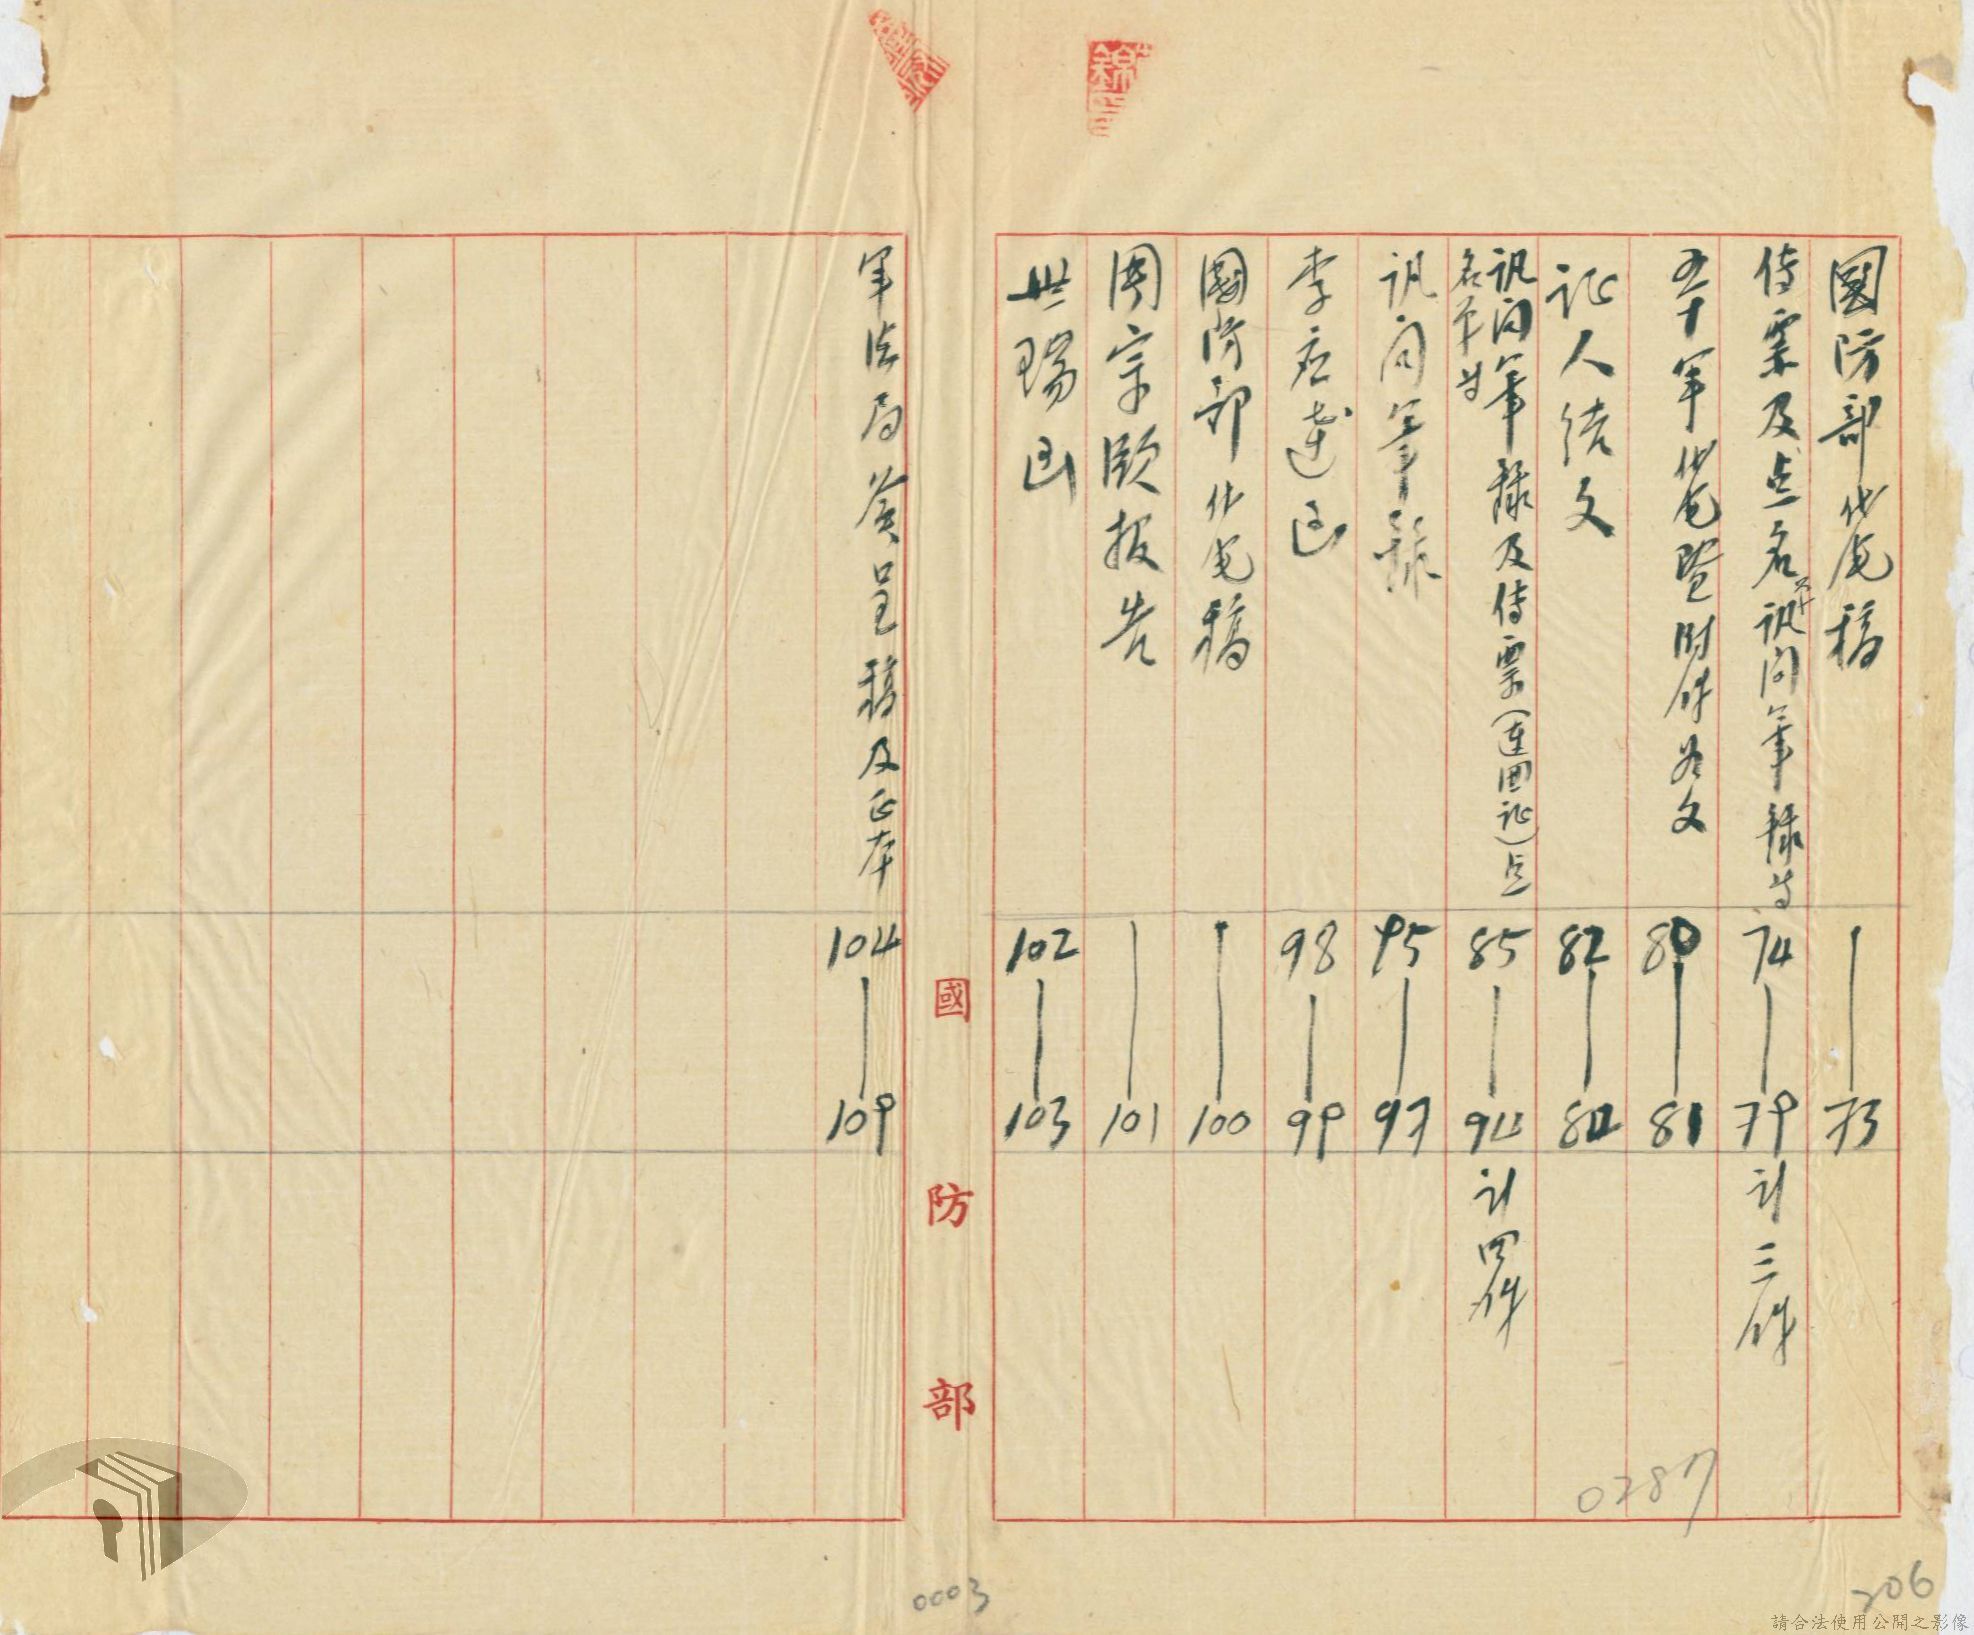 國防部代电稿
｜
73
傳票及点名单訊问筆錄等
74
｜
79
計三件
五十軍代电暨附件公文
80
｜
81
证人结文
82
｜
84
訊问筆錄及傳票(連回证)点
名单等
85
｜
94
計四件
訊问筆錄
95
｜
97
李应達函
98
｜
99
國防部代电稿
｜
100
周宗頤报告
｜
101
瑞函
102
｜
103
國防部
軍法局簽呈稿及正本
104
｜
109
錦
0287
0003
206
請合法使用公開之影像